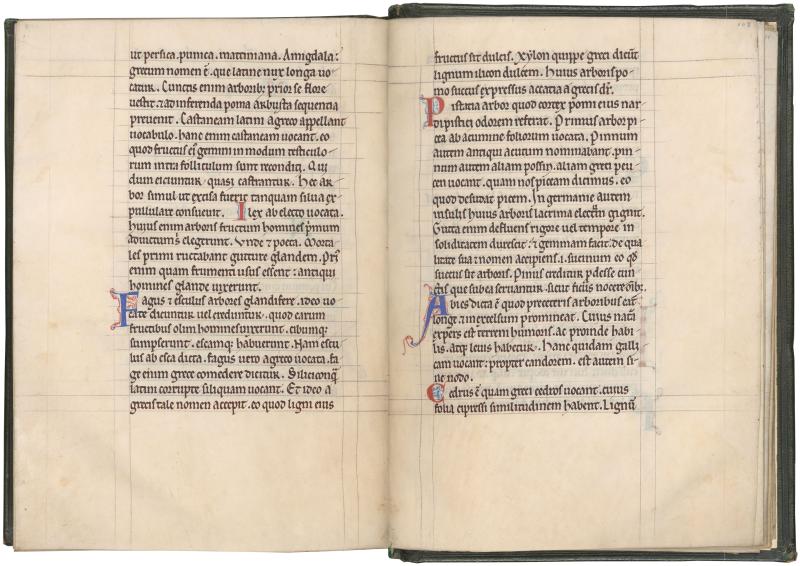 ut persica. punica. matiniana. Amigdala:
grecum nomen ē. que latine nux longa uo
catur. Cunctis enim arborib; prior se flore
uestit. ⁊ ad inferenda poma arbusta sequentia
preuenit. Castaneam latini a greco appellant
uocabulo. hanc enim castaneam uocant. eo
quod fructus ei gemini in modum testiculo
rum intra folliculum sunt reconditi. Qui
dum eiciuntur quasi castrantur. Hec ar
bor simul ut excisa fuerit tanquam silua ex
pullulare consueuit. Ilex ab electo uocata.
huius enim arboris fructum homines primum
ad uictum elegerunt. Unde ⁊ poeta. Morta
les primi ructabant gutture glandem. Pri
enim quam frumenti usus essent: antiqui
homines glande uixerunt.
Fagus ⁊ esculus arbores glandifere. ideo uo
cate dicuntur uel creduntur. quod earum
fructibus olim homines uixerunt. cibumq;
sumpserunt. escamq; habuerunt. Nam escu
lus ab esca dicta. fagus uero a greco uocata. fa
gein enim grece comedere dicitur. Siliciconq̄
latini corrupte siliquam uocant. Et ideo a
grecis tale nomen accepit. eo quod ligni eius
fructus sit dulcis. Xylon quippe greci dicūt
lignum ilicon dulcem. Huius arboris po
mo succus expressus accatia a grecis dr̄.
Pistatia arbor quod cortex pomi eius nar
di pistici odorem referat. Primus arbor pi
cea ab acumine foliorum uocata. Pinnum
autem antiqui acutum nominabant. pin
num autem aliam possin. aliam greci peu
cen uocant. quam nos piceam dicimus. eo
quod desudat picem. In germanie autem
insulis huius arboris lacrima electrum gignit.
Gutta enim defluens rigore uel tempore in
soliditatem durescit: ⁊ gemmam facit. de qua
litate sua ⁊ nomen accipiens. i. sucinum eo qd̄
sucus sit arboris. Pinus creditur prodesse cun
ctis que sub ea seruantur. sicut ficus nocere omib;
Abies dicta ē quod pre ceteris arboribus eat
longe ⁊ in excelsum promineat. Cuius natura
expers est terreni humoris. ac proinde habi
lis. atq; leuis habetur. Hanc quidam galli
cam uocant: propter candorem. est autem si
ne nodo.
Cedrus ē quam greci cedros uocant. cuius
folia cipressi similitudinem habent. Lignū